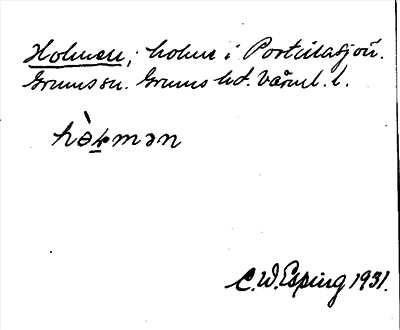 Holmen, holme i Portilasjön.
Grums sn. Grums hd. Värml. l.
hò̱lmən
C.W. Esping 1931.